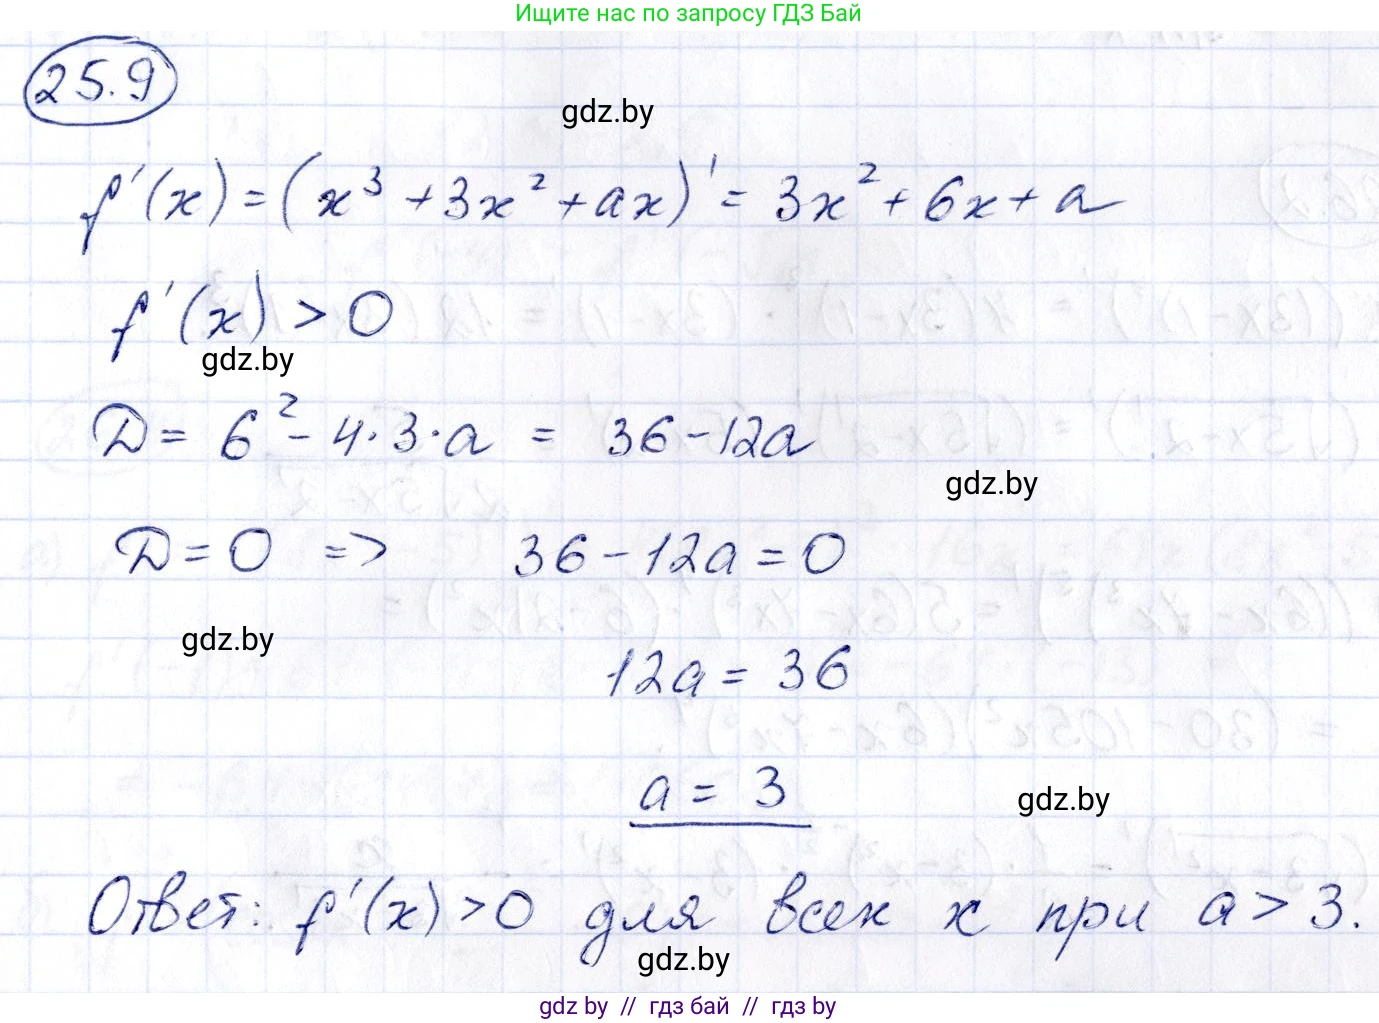 Ищите нас по запросу ГДЗ Бай
25.9
gdz.by
f'(x) = (x³ + 3x² + ax)' = 3x² + 6x + a
f'(x) > 0
gdz.by
D = 6² - 4·3·a = 36 - 12a
gdz.by
D = 0 => 36 - 12a = 0
gdz.by
12a = 36
a = 3
gdz.by
Ответ: f'(x) > 0 для всех x при a > 3.
gdz.by
gdz by // гдз бай // гдз by